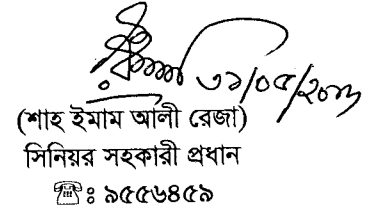 ৩১/০৫/২০১৩
(শাহ ইমাম আলী রেজা)
সিনিয়র সহকারী প্রধান
☎ঃ ৯৫৫৬৪৫৯